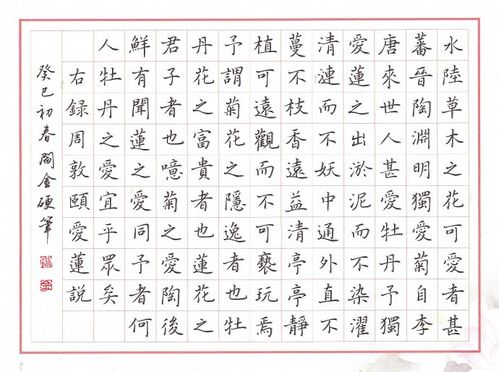 水陸草木之花可愛者甚
蕃晉陶淵明獨愛菊自李
唐來世人甚愛牡丹予獨
愛蓮之出淤泥而不染濯
清漣而不妖中通外直不
蔓不枝香遠益清亭亭靜
植可遠觀而不可褻玩焉
予謂菊花之隱逸者也牡
丹花之富貴者也蓮花之
君子者也噫菊之愛陶後
鮮有聞蓮之愛同予者何
人牡丹之愛宜乎眾矣
右録周敦頤愛蓮說
癸巳初春閻金硬筆